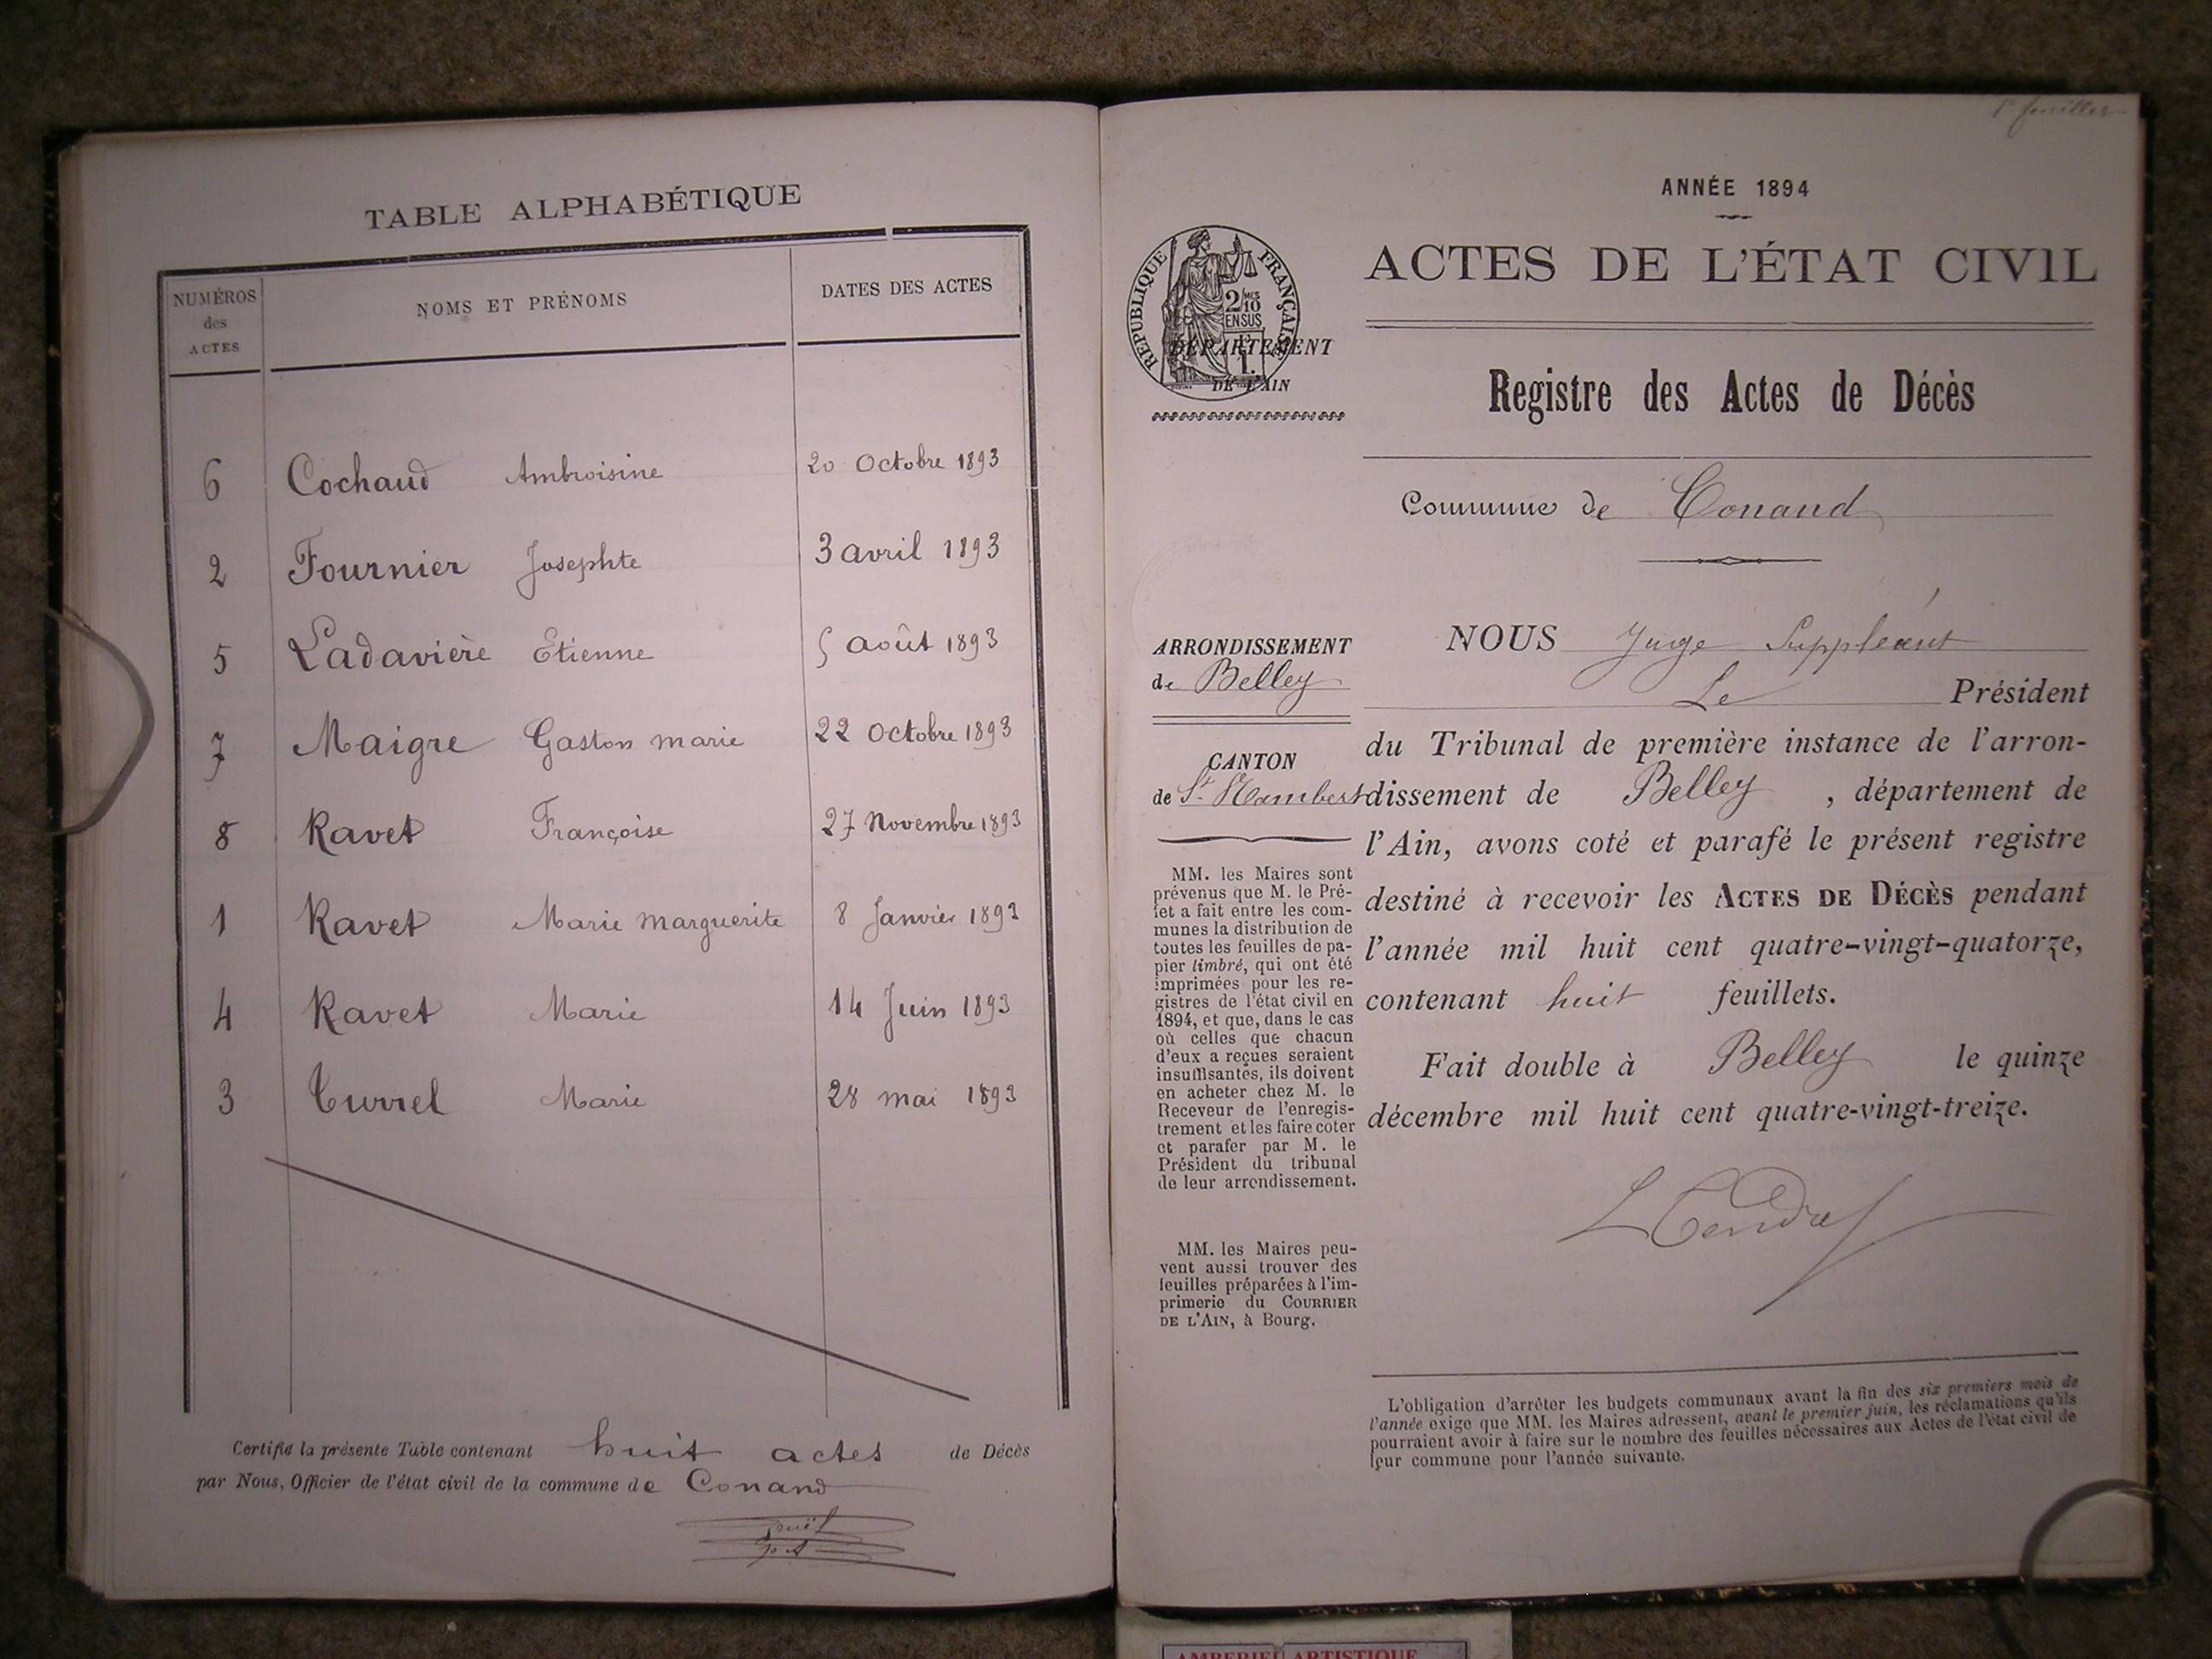 TABLE ALPHABÉTIQUE
NUMÉROS des ACTES
NOMS ET PRÉNOMS
DATES DES ACTES
6 Cochaud Ambroisine 20 Octobre 1893
2 Fournier Josephte 3 avril 1893
5 Ladavière Etienne 5 août 1893
7 Maigre Gaston marie 22 Octobre 1893
8 Ravet Françoise 27 Novembre 1893
1 Ravet Marie marguerite 8 Janvier 1893
4 Ravet Marie 14 Juin 1893
3 Currel Marie 28 mai 1893
Certifié la présente Table contenant huit actes de Décès
par Nous, Officier de l'état civil de la commune de Conand
1er feuillet
ANNÉE 1894
RÉPUBLIQUE FRANÇAISE
2/10 MES
EN SUS
DÉPARTEMENT
DE L'AIN
ACTES DE L'ÉTAT CIVIL
Registre des Actes de Décès
Commune de Conand
ARRONDISSEMENT
de Belley
CANTON
de St. Rambert
MM. les Maires sont
prévenus que M. le Pré-
fet a fait entre les com-
munes la distribution de
toutes les feuilles de pa-
pier timbré, qui ont été
imprimées pour les re-
gistres de l'état civil en
1894, et que, dans le cas
où celles que chacun
d'eux a reçues seraient
insuffisantes, ils doivent
en acheter chez M. le
Receveur de l'enregis-
trement et les faire coter
et parafer par M. le
Président du tribunal
de leur arrondissement.
MM. les Maires peu-
vent aussi trouver des
feuilles préparées à l'im-
primerie du COURRIER
DE L'AIN, à Bourg.
NOUS Juge Suppléant
Le Président
du Tribunal de première instance de l'arron-
dissement de Belley , département de
l'Ain, avons coté et parafé le présent registre
destiné à recevoir les ACTES DE DÉCÈS pendant
l'année mil huit cent quatre-vingt-quatorze,
contenant huit feuillets.
Fait double à Belley le quinze
décembre mil huit cent quatre-vingt-treize.
L'obligation d'arrêter les budgets communaux avant la fin des six premiers mois de
l'année exige que MM. les Maires adressent, avant le premier juin, les réclamations qu'ils
pourraient avoir à faire sur le nombre des feuilles nécessaires aux Actes de l'état civil de
leur commune pour l'année suivante.
AMBERIEU ARTISTIQUE